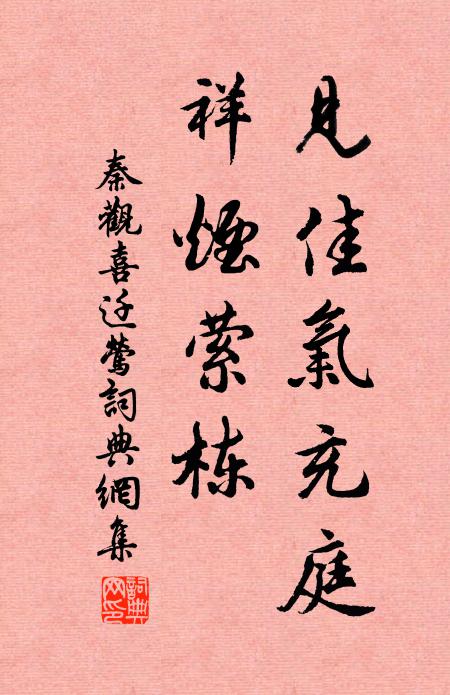 見佳氣充庭
祥煙縈棟
秦觀喜迁鶯詞典網集
詞典网印